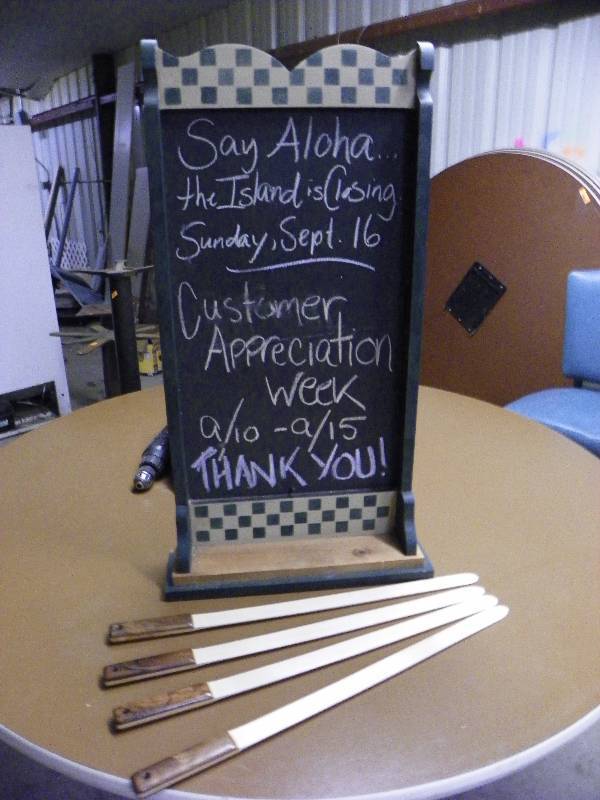 Say Aloha...
the Island is Closing
Sunday, Sept. 16
Customer
Appreciation
Week
9/10 - 9/15
THANK YOU!